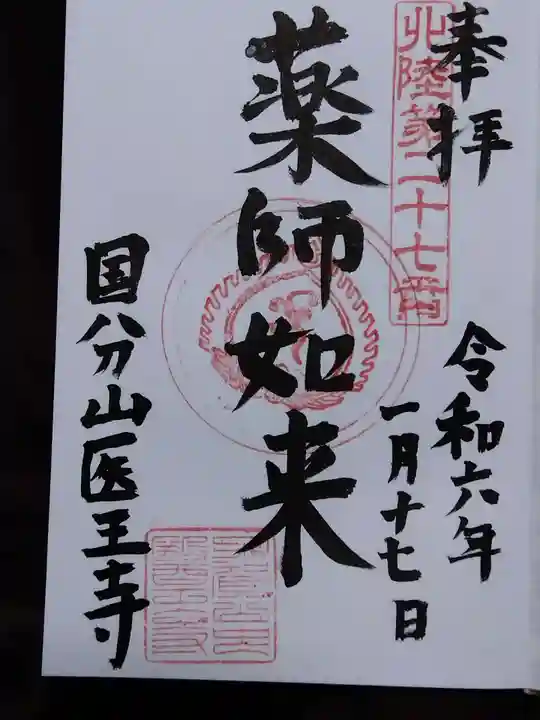 奉拝
北陸第二十七番
令和六年
一月十七日
薬師如来
国分山医王寺